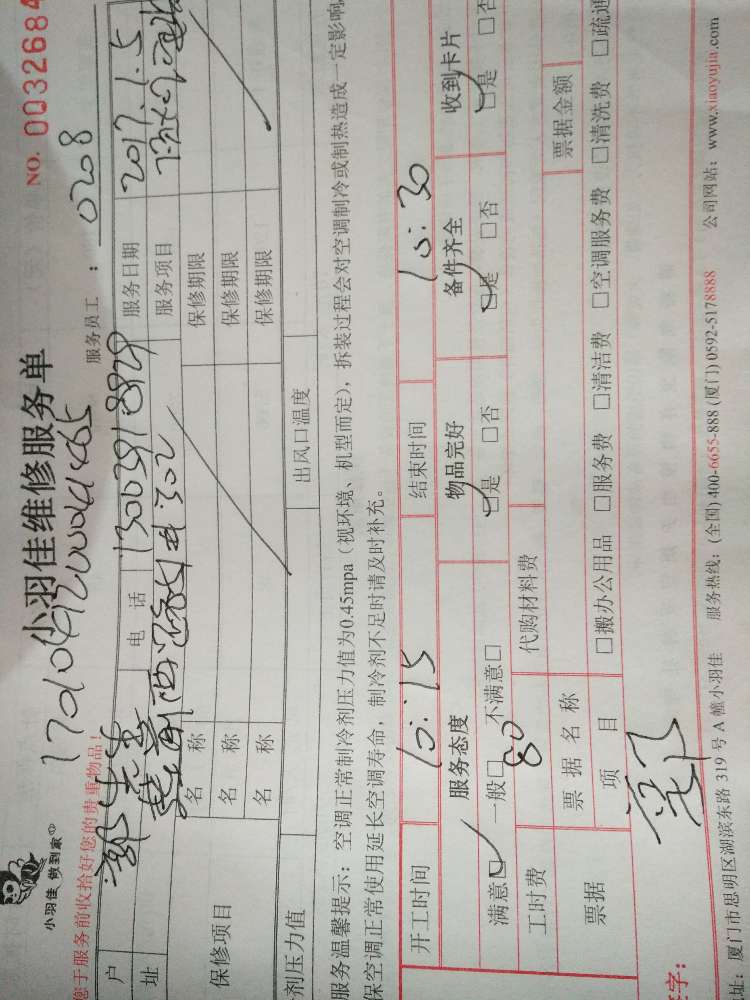 小羽佳 做到家
小羽佳维修服务单
NO. 0032684
服务员工： 0208
您于服务前收拾好您的贵重物品！
户 电 话 服务日期 2017.1.5
址 302 服务项目
保修项目
名 称 保修期限
名 称 保修期限
名 称 保修期限
剂压力值 出风口温度
服务温馨提示：空调正常制冷剂压力值为0.45mpa（视环境、机型而定），拆装过程会对空调制冷或制热造成一定影响
保空调正常使用延长空调寿命，制冷剂不足时请及时补充。
开工时间 10:15 结束时间 10:30
服务态度 物品完好 备件齐全 收到卡片
满意□ 一般□ 不满意□ □是 □否 □是 □否 □是 □否
工时费 80 代购材料费
票据 票 据 名 称 票据金额
项 目 □搬办公用品 □服务费 □清洁费 □空调服务费 □清洗费 □疏通
字：
址：厦门市思明区湖滨东路 319 号 A 幢小羽佳 服务热线：(全国) 400-6655-888 (厦门) 0592-5178888 公司网站：www.xiaoyujia.com